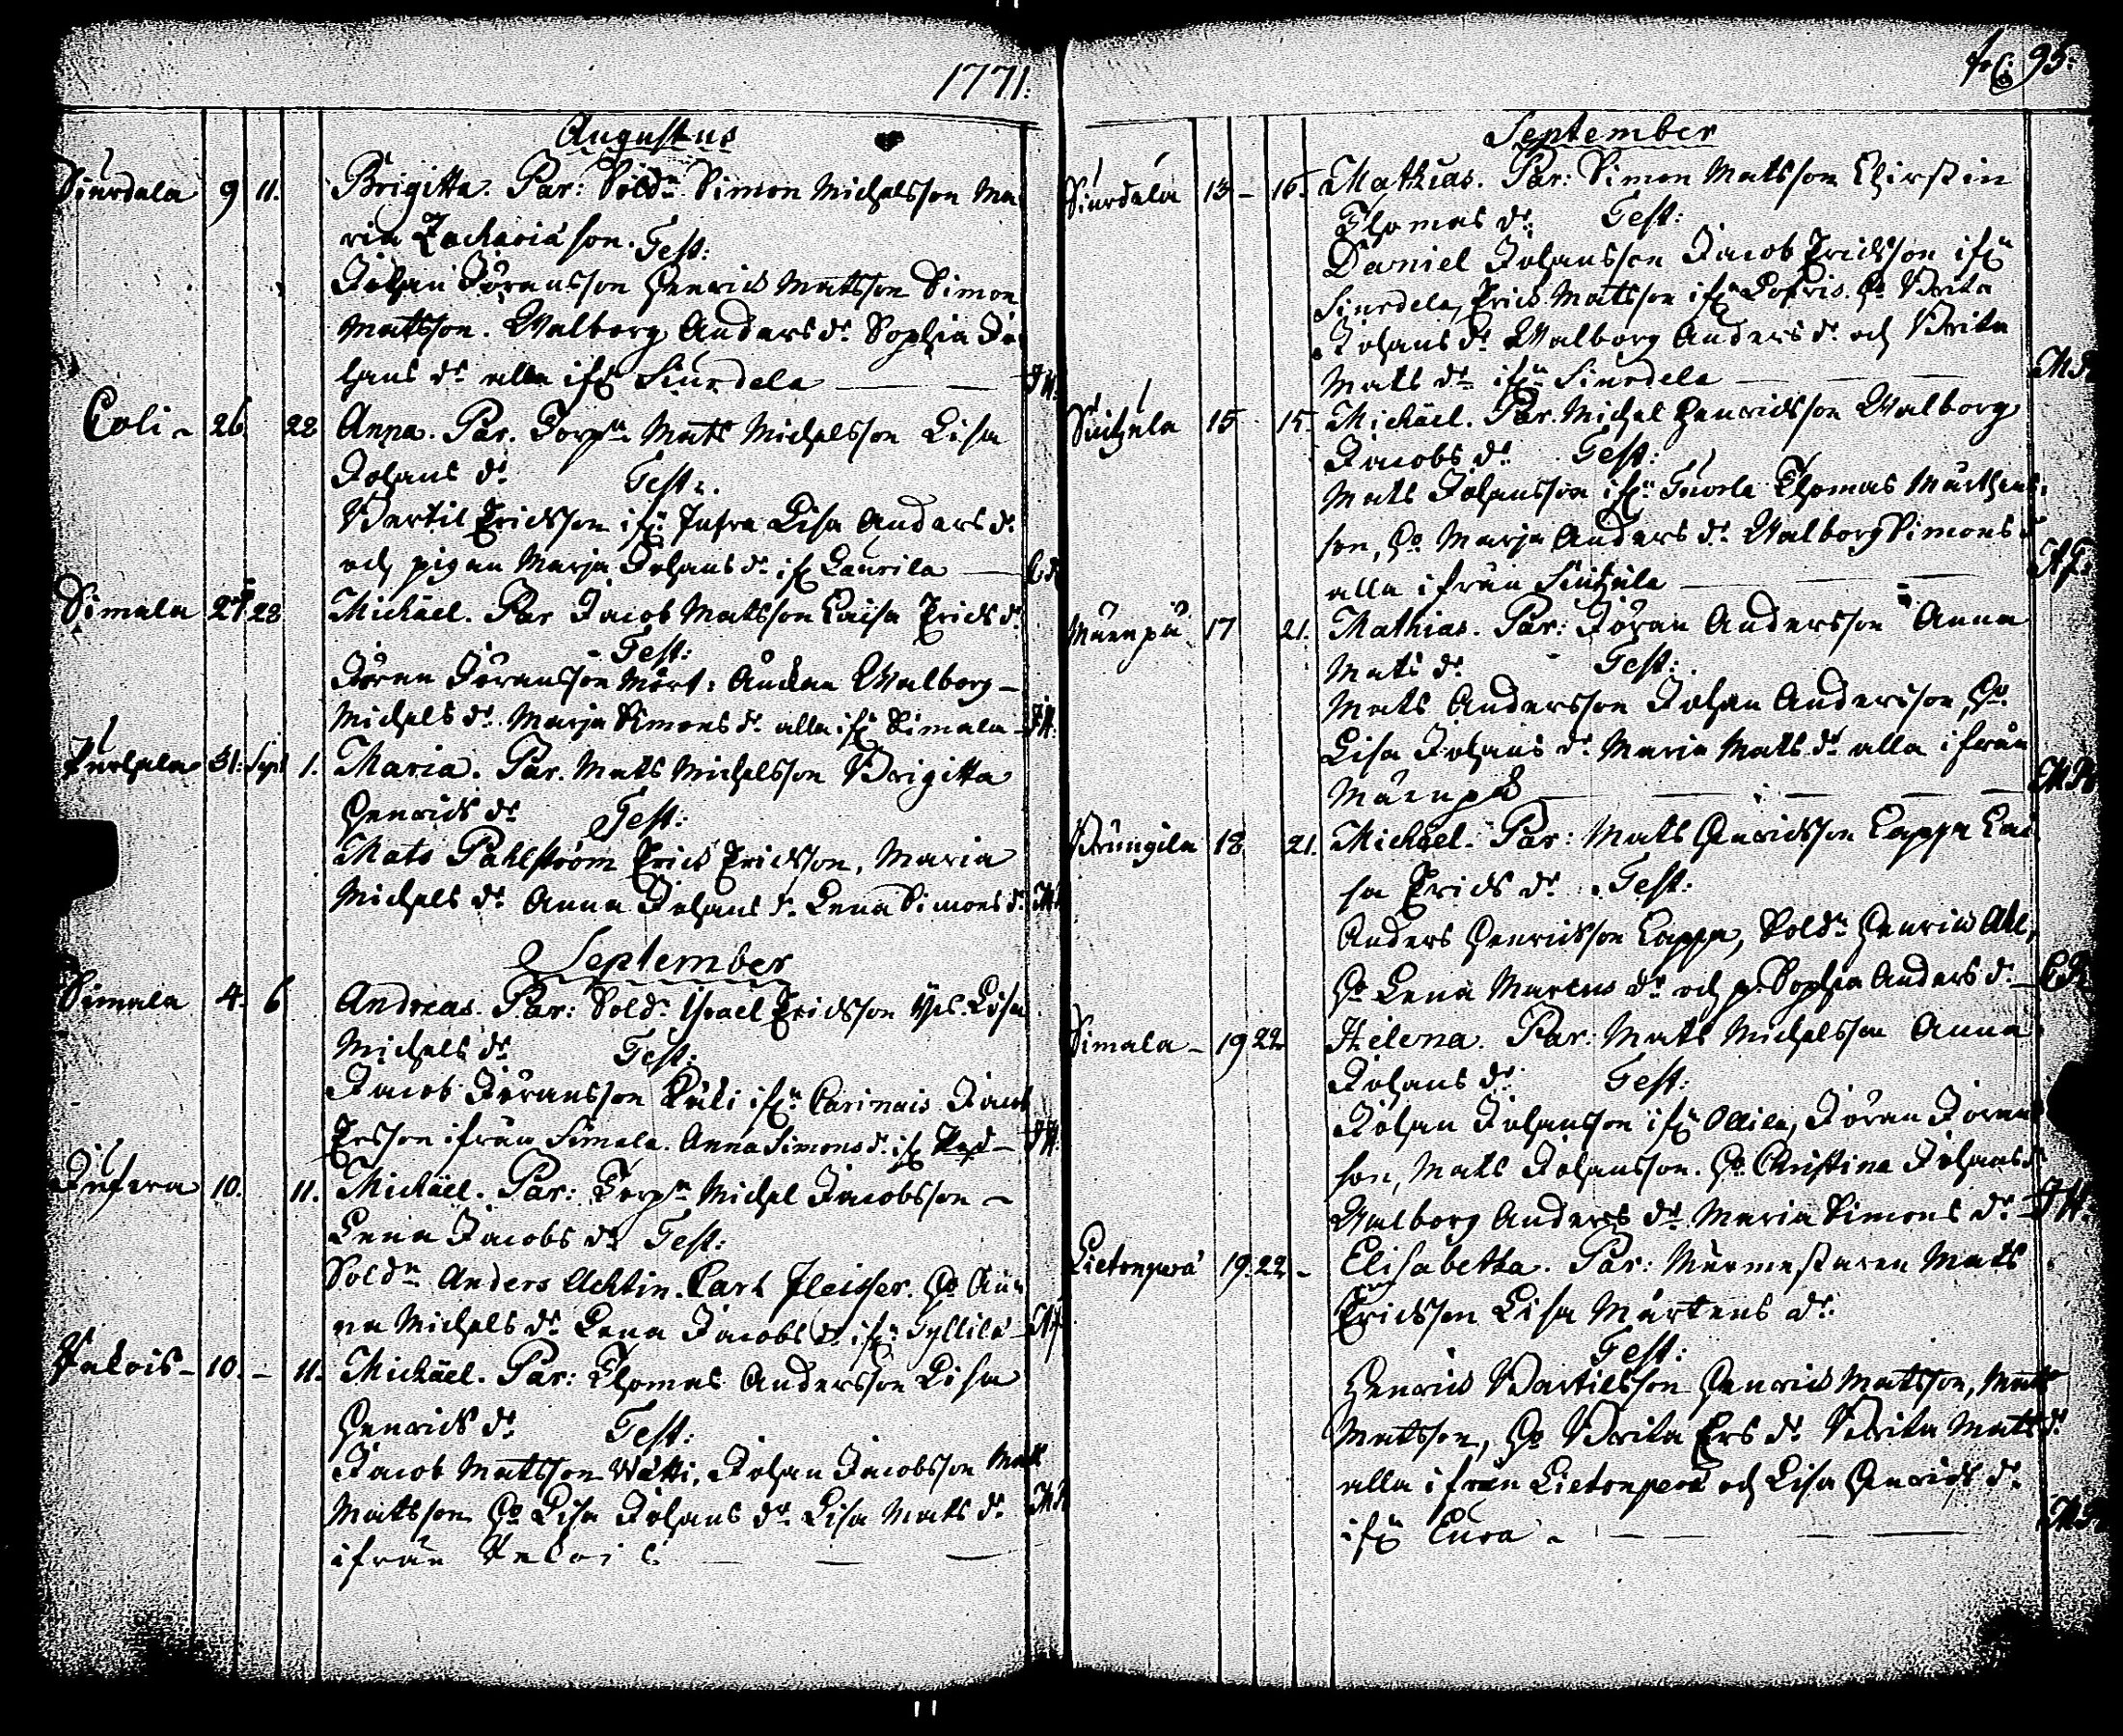 1771.
Augustus
Siurdala 9 11. Brigitta. Par: Sold:n Simon Michelsson Ma
ria Zachariæ son. Test:
Johan Jöransson Henrich Matsson Simon
Matsson. Walborg Anders dr Sophia Jo
hans dr alla ifr Siurdela
Coli - 26 22 Anna. Par. Torp:n Mats Michelsson Lisa
Johans dr Test:
Bartil Ericsson ifr Lisa Anders dr
och pigan Marja Johans dr ifr Laurila
Simala 27 28 Michäel. Par Jacob Matsson Caisa Erics dr
Test:
Jöran Jöransson Mårt: Walborg
Michels dr Marja Simons dr alla ifr Simala
31. Sept 1. Maria. Par. Mats Michelsson Brigitta
Henrics dr Test:
Mats Pahlström Erich Ericsson, Maria
Michels dr Anna Johans dr Lena Simons dr
September
Simala 4. 6 Andreas. Par: Sold: Israel Ericsson Lisa
Michels dr Test:
Jacob Jöransson ifr Carinais Jacob
Ersson ifrån Simala. Anna Simons dr ifr
10. 11. Michäel. Par: Torp:n Michel Jacobsson -
Lena Jacobs dr Test:
Sold:n Anders Achtin. Carl Fleisser. Ho An
na Michels dr Lena Jacobs dr ifr
10. - 11. Michäel. Par: Thomas Andersson Lisa
Henrics dr Test:
Jacob Matsson Wätti, Johan Jacobsson Mats
Matsson Ho Lisa Johans dr Lisa Mats dr
ifrån
fol: 95.
September
Siurdala 13 - 15. Mathias. Par: Simon Matsson Chirstin
Thomas dr Test:
Daniel Johansson Jacob Ericsson ifr
Siurdela, Erich Matsson ifr Ho Brita
Johans dr Walborg Anders dr och Brita
Mats dr ifr Siurdela
15 15. Michäel. Par. Michel Henricsson Walborg
Jacobs dr Test:
Mats Johansson ifr Thomas Mårthens
son, Ho Marja Anders dr Walborg Simons dr
alla ifrån
Mäenpä 17 21. Mathias. Par: Jöran Andersson Anna
Mats dr Test:
Mats Andersson Johan Andersson, Ho
Lisa Johans dr Maria Mats dr alla ifrån
Mäenpä
18. 21. Michäel. Par: Mats Henricsson Cappa Cai
sa Erics dr Test:
Anders Henricsson Cappa, Sold:n Henrich Ahl,
Ho Lena Marcus dr och p. Sophia Anders dr
Simala - 19 22 Helena. Par. Mats Michelsson Anna
Johans dr Test:
Johan Johansson ifr Ollila, Jöran Jörans
son, Mats Johansson. Ho Christina Johans dr
Walborg Anders dr Maria Simons dr
Lietonperä 19. 22. - Elisabetha. Par: Murmestaren Mats
Ericsson Lisa Mårtens dr
Test:
Henrich Bartilsson Henrich Matsson, Mats
Matsson, Ho Brita Ers dr Brita Mats dr
alla ifrån Lietonperä och Lisa Henrics dr
ifr Eura -